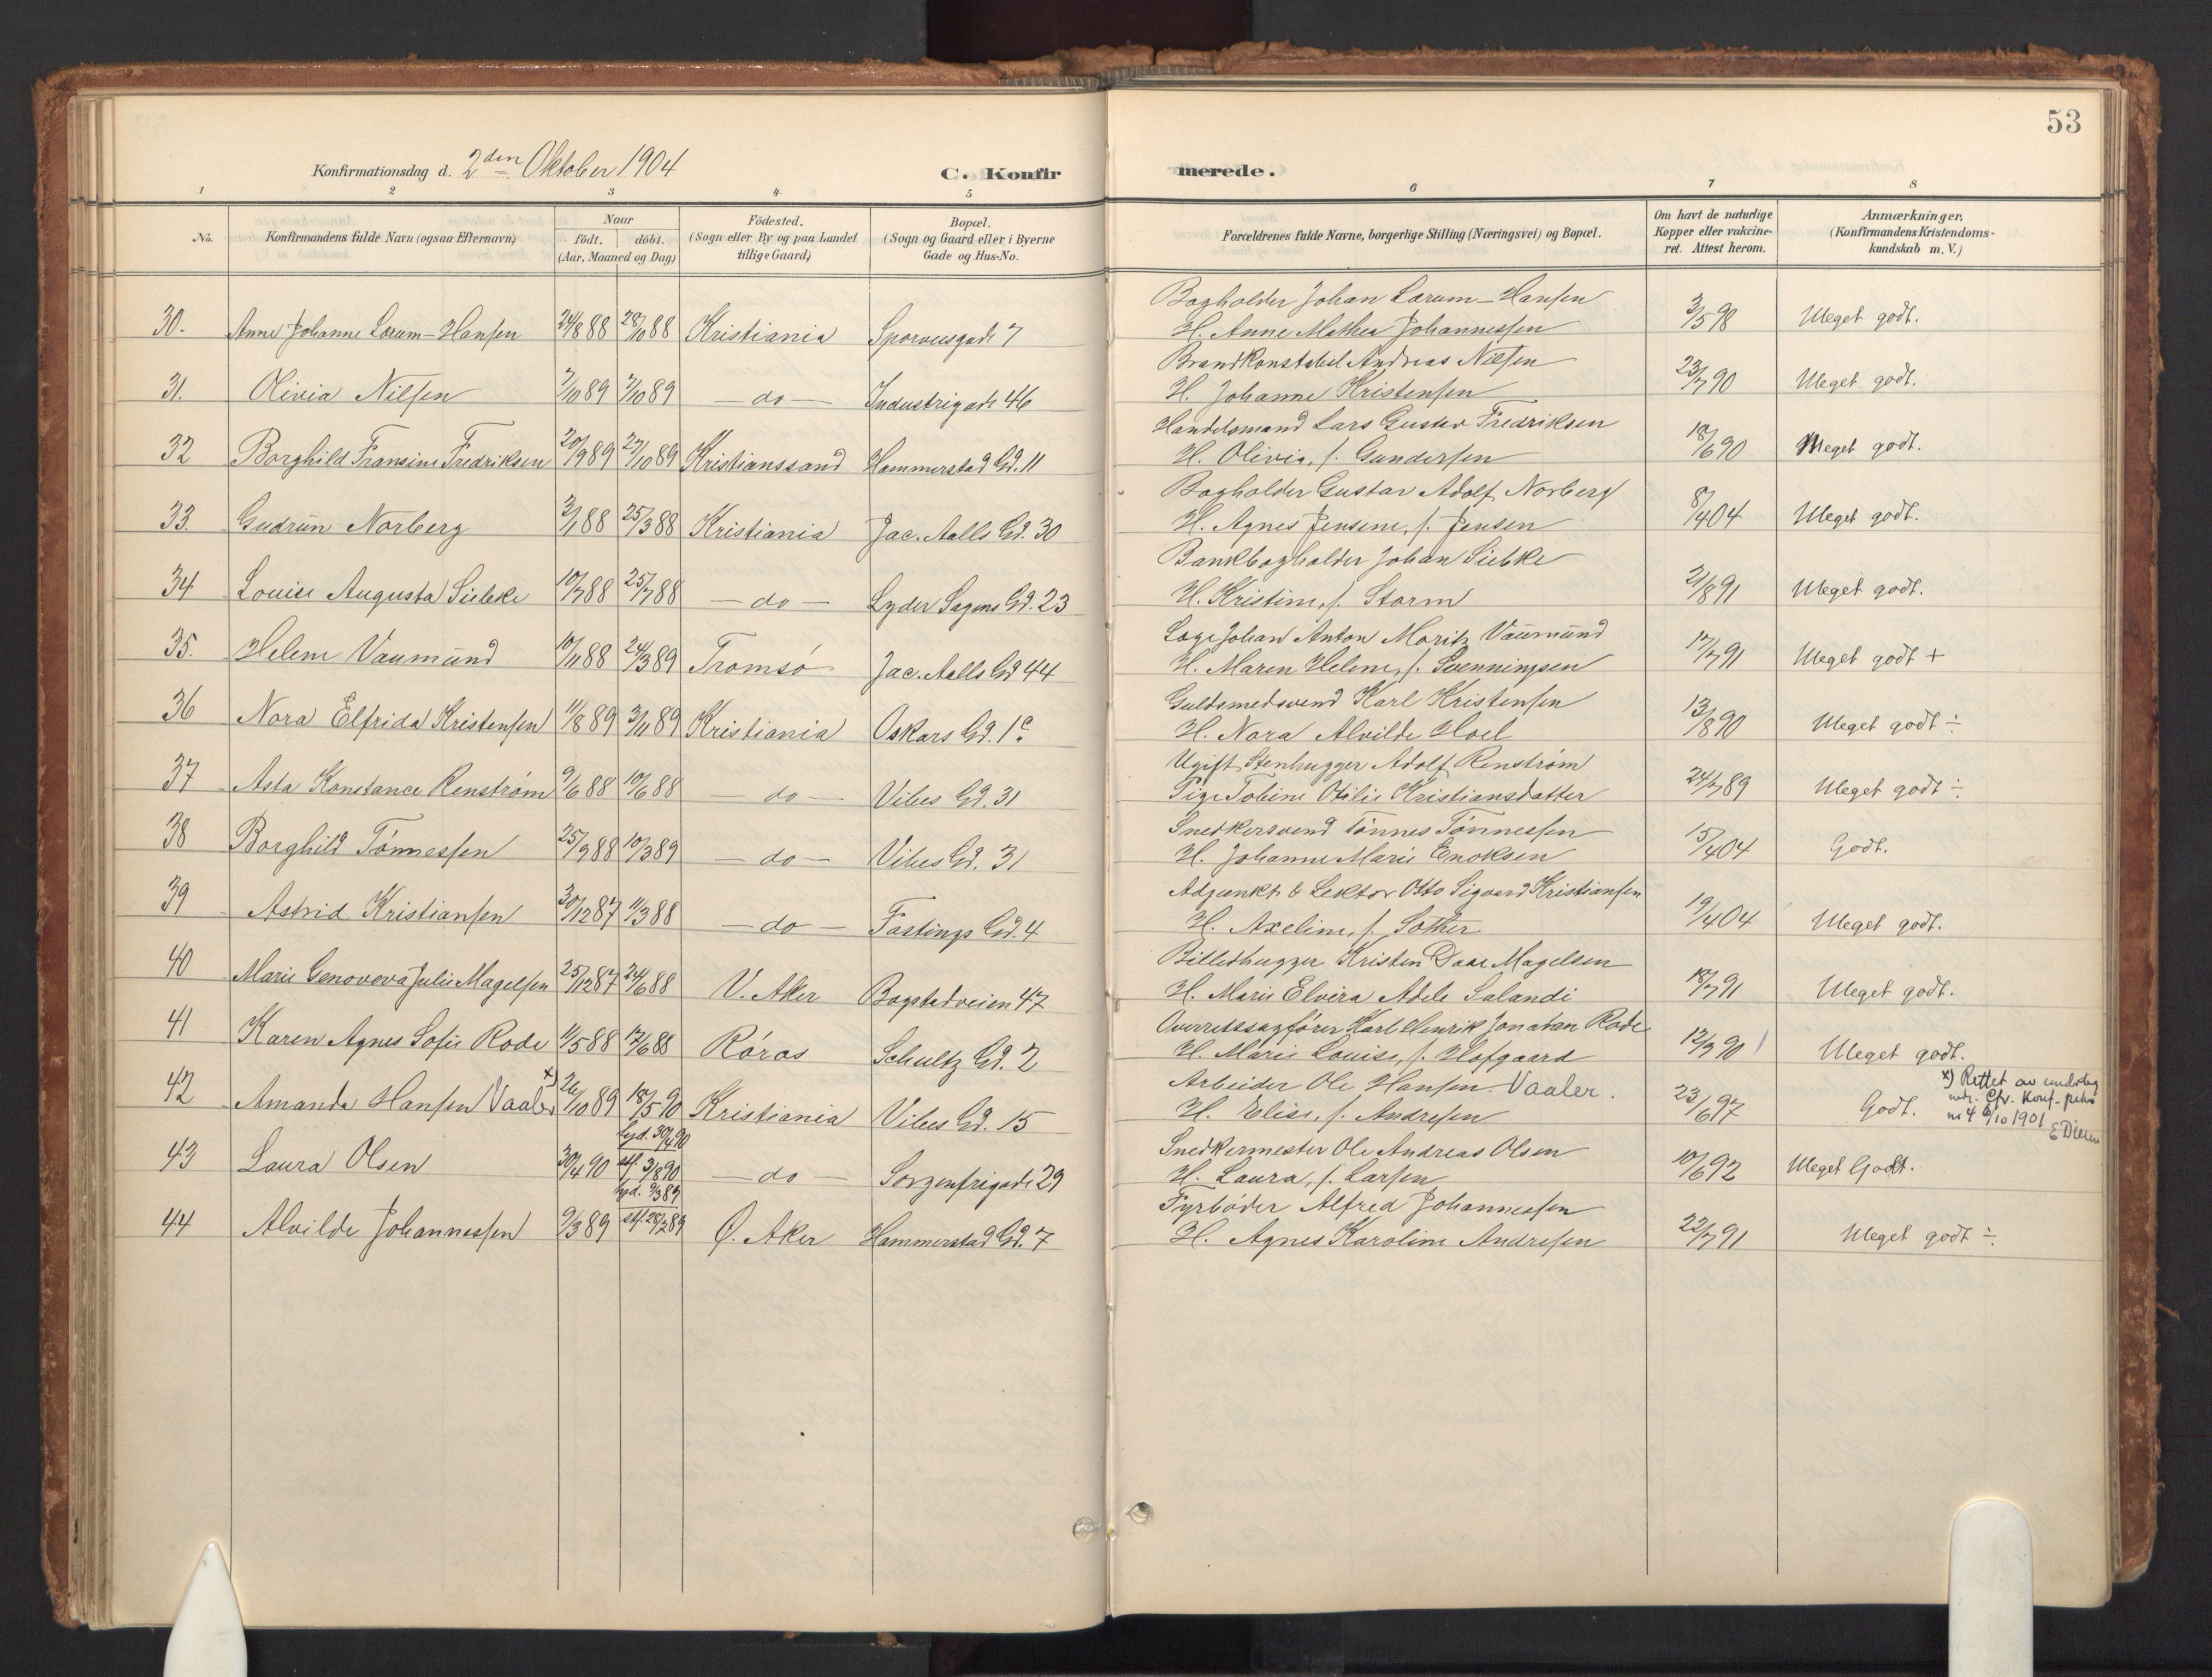 53
Konfirmationsdag d. 2den Oktober 1904
C. Konfirmerede.
1 2 3 4 5 6 7 8
No. Konfirmandens fulde Navn (ogsaa Efternavn) Naar født. døbt. (Aar, Maaned og Dag) Fødested. (Sogn eller By og paa Landet tillige Gaard) Bopæl. (Sogn og Gaard eller i Byerne Gade og Hus-No. Forældrenes fulde Navne, borgerlige Stilling (Næringsvei) og Bopæl. Om havt de naturlige Kopper eller vakcineret. Attest herom. Anmærkninger, (Konfirmandens Kristendomskundskab m. V.)
Bogholder Johan Lorum-Hansen
30. Anne Johanne Lorum-Hansen 24/8 88 28/10 88 Kristiania Sporveisgade 7 H. Anne Mathea Johannessen 3/5 98 Meget godt.
Brandkonstabel Andreas Nilsen
31. Olivia Nilsen 7/10 89 7/10 89 — do — Industrigade 46 H. Johanne Kristensen 23/7 90 Meget godt.
Handelsmand Lars Gustav Fredriksen
32 Borghild Fransine Fredriksen 20/9 89 27/10 89 Kristianssand Hammerstad Gd. 11 H. Olivia, f. Gundersen 18/6 90 Meget godt.
Bogholder Gustav Adolf Norberg
33. Gudrun Norberg 2/1 88 25/3 88 Kristiania Jac. Aalls Gd. 30 H. Agnes Jensine, f. Jensen 8/4 04 Meget godt.
Bankbogholder Johan Siebke
34 Louise Augusta Siebke 10/7 88 25/7 88 — do — Lyder Sagens Gd. 23 H. Kristine, f. Storm 21/8 91 Meget godt.
Læge Johan Anton Moritz Vaumund
35. Helene Vaumund 10/11 88 24/3 89 Tromsø Jac. Aalls Gd 44 H. Maren Helene, f. Svenningsen 17/7 91 Meget godt +
Guldsmedsvend Karl Kristensen
36 Nora Elfrida Kristensen 11/8 89 3/11 89 Kristiania Oskars Gd. 1c H. Nora Alvilde Hoel 13/8 90 Meget godt ÷
Ugift Stenhugger Adolf Renstrøm
37 Asta Konstance Renstrøm 9/6 88 10/6 88 — do — Vibes Gd. 31 Pige Tobine Otilie Kristiansdatter 24/7 89 Meget godt ÷
Snedkersvend Tønnes Tønnessen
38 Borghild Tønnessen 25/9 88 10/3 89 — do — Vibes Gd. 31 H. Johanne Marie Enoksen 15/4 04 Godt.
Adjunkt & Lektor Otto Sigvard Kristiansen
39 Astrid Kristiansen 30/12 87 11/3 88 — do — Fastings Gd. 4 H. Axeline, f. Sother 19/4 04 Meget godt.
Billedhugger Kristen Daae Magelsen
40 Marie Genoveva Julie Magelsen 25/12 87 24/6 88 V. Aker Bogstadveien 47 H. Marie Elvira Adele Salandi 18/7 91 Meget godt.
Overretssagfører Karl Henrik Jonatan Rode
41 Karen Agnes Sofie Rode 11/5 88 17/6 88 Røros Schultz Gd. 2 H. Marie Louise, f. Hofgaard 12/9 90 Meget godt.
Arbeider Ole Hansen Vaaler.
42 Amanda Hansen Vaaler x) 26/10 89 18/5 90 Kristiania Vibes Gd. 15 H. Elise, f. Andresen 23/6 97 Godt. x) Rettet av undsteg
Cfr. Konf.
nr 4 6/10 1901
Snedkermester Ole Andreas Olsen
43 Laura Olsen 30/4 90 hjd. 30/4 90 stf. 3/8 90 — do — Sorgenfrigade 29 H. Laura, f. Larsen 10/6 92 Meget Godt.
Fyrbøder Alfred Johannessen
44 Alvilde Johannessen 9/3 89 hjd. 9/3 89 stf. 28/7 89 Ø. Aker Hammerstad Gd. 7 H. Agnes Karoline Andresen 22/7 91 Meget godt ÷